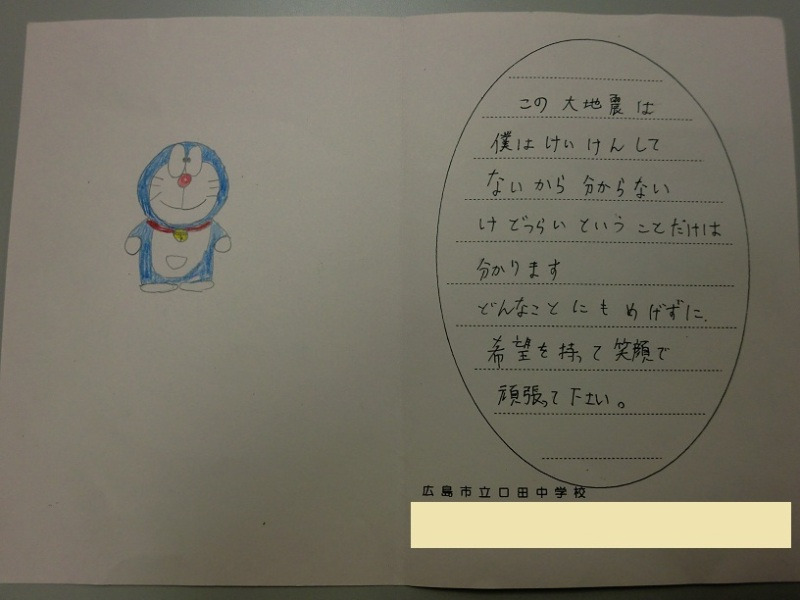 この大地震は
僕はけいけんして
ないから分からない
けどつらいということだけは
分かります
どんなことにもめげずに、
希望を持って笑顔で
頑張って下さい。
広島市立口田中学校